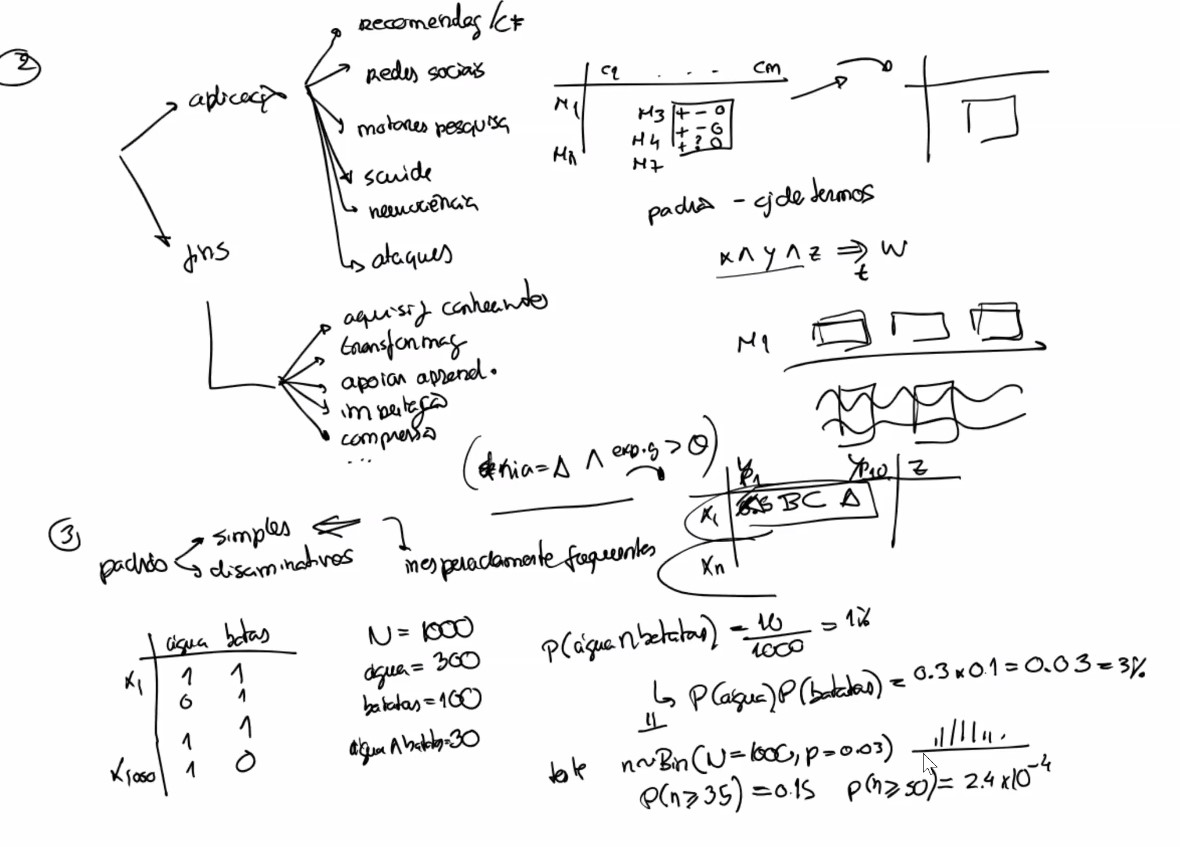 2
aplicaç
recomendaç / CF
redes sociais
motores pesquisa
saúde
neurociência
ataques
fins
aquisiç conhecimentos
transformaç
apoiar aprend.
imputação
compressão
...
c1 . . . cm
M1
Mn
M3 + - 0
M4 + - 0
M7 + ? 0
padrão - cj de termos
x ∧ y ∧ z ⇒ w
t
M1
( = Δ ∧ exp.g > θ )
y1 y10 z
x1 B C A
xn
3
padrão
simples
discriminativos
inesperadamente frequentes
água batas
x1 1 1
0 1
1 1
x1000 1 0
N = 1000
água = 300
batatas = 100
água ∧ batatas = 30
P(água ∩ batatas) = 10/1000 = 1%
↳ P(água) P(batatas) = 0.3 x 0.1 = 0.03 = 3%
teste n ~ Bin(N = 1000, p = 0.03)
P(n ≥ 35) = 0.15 P(n ≥ 50) = 2.4 x 10^-4